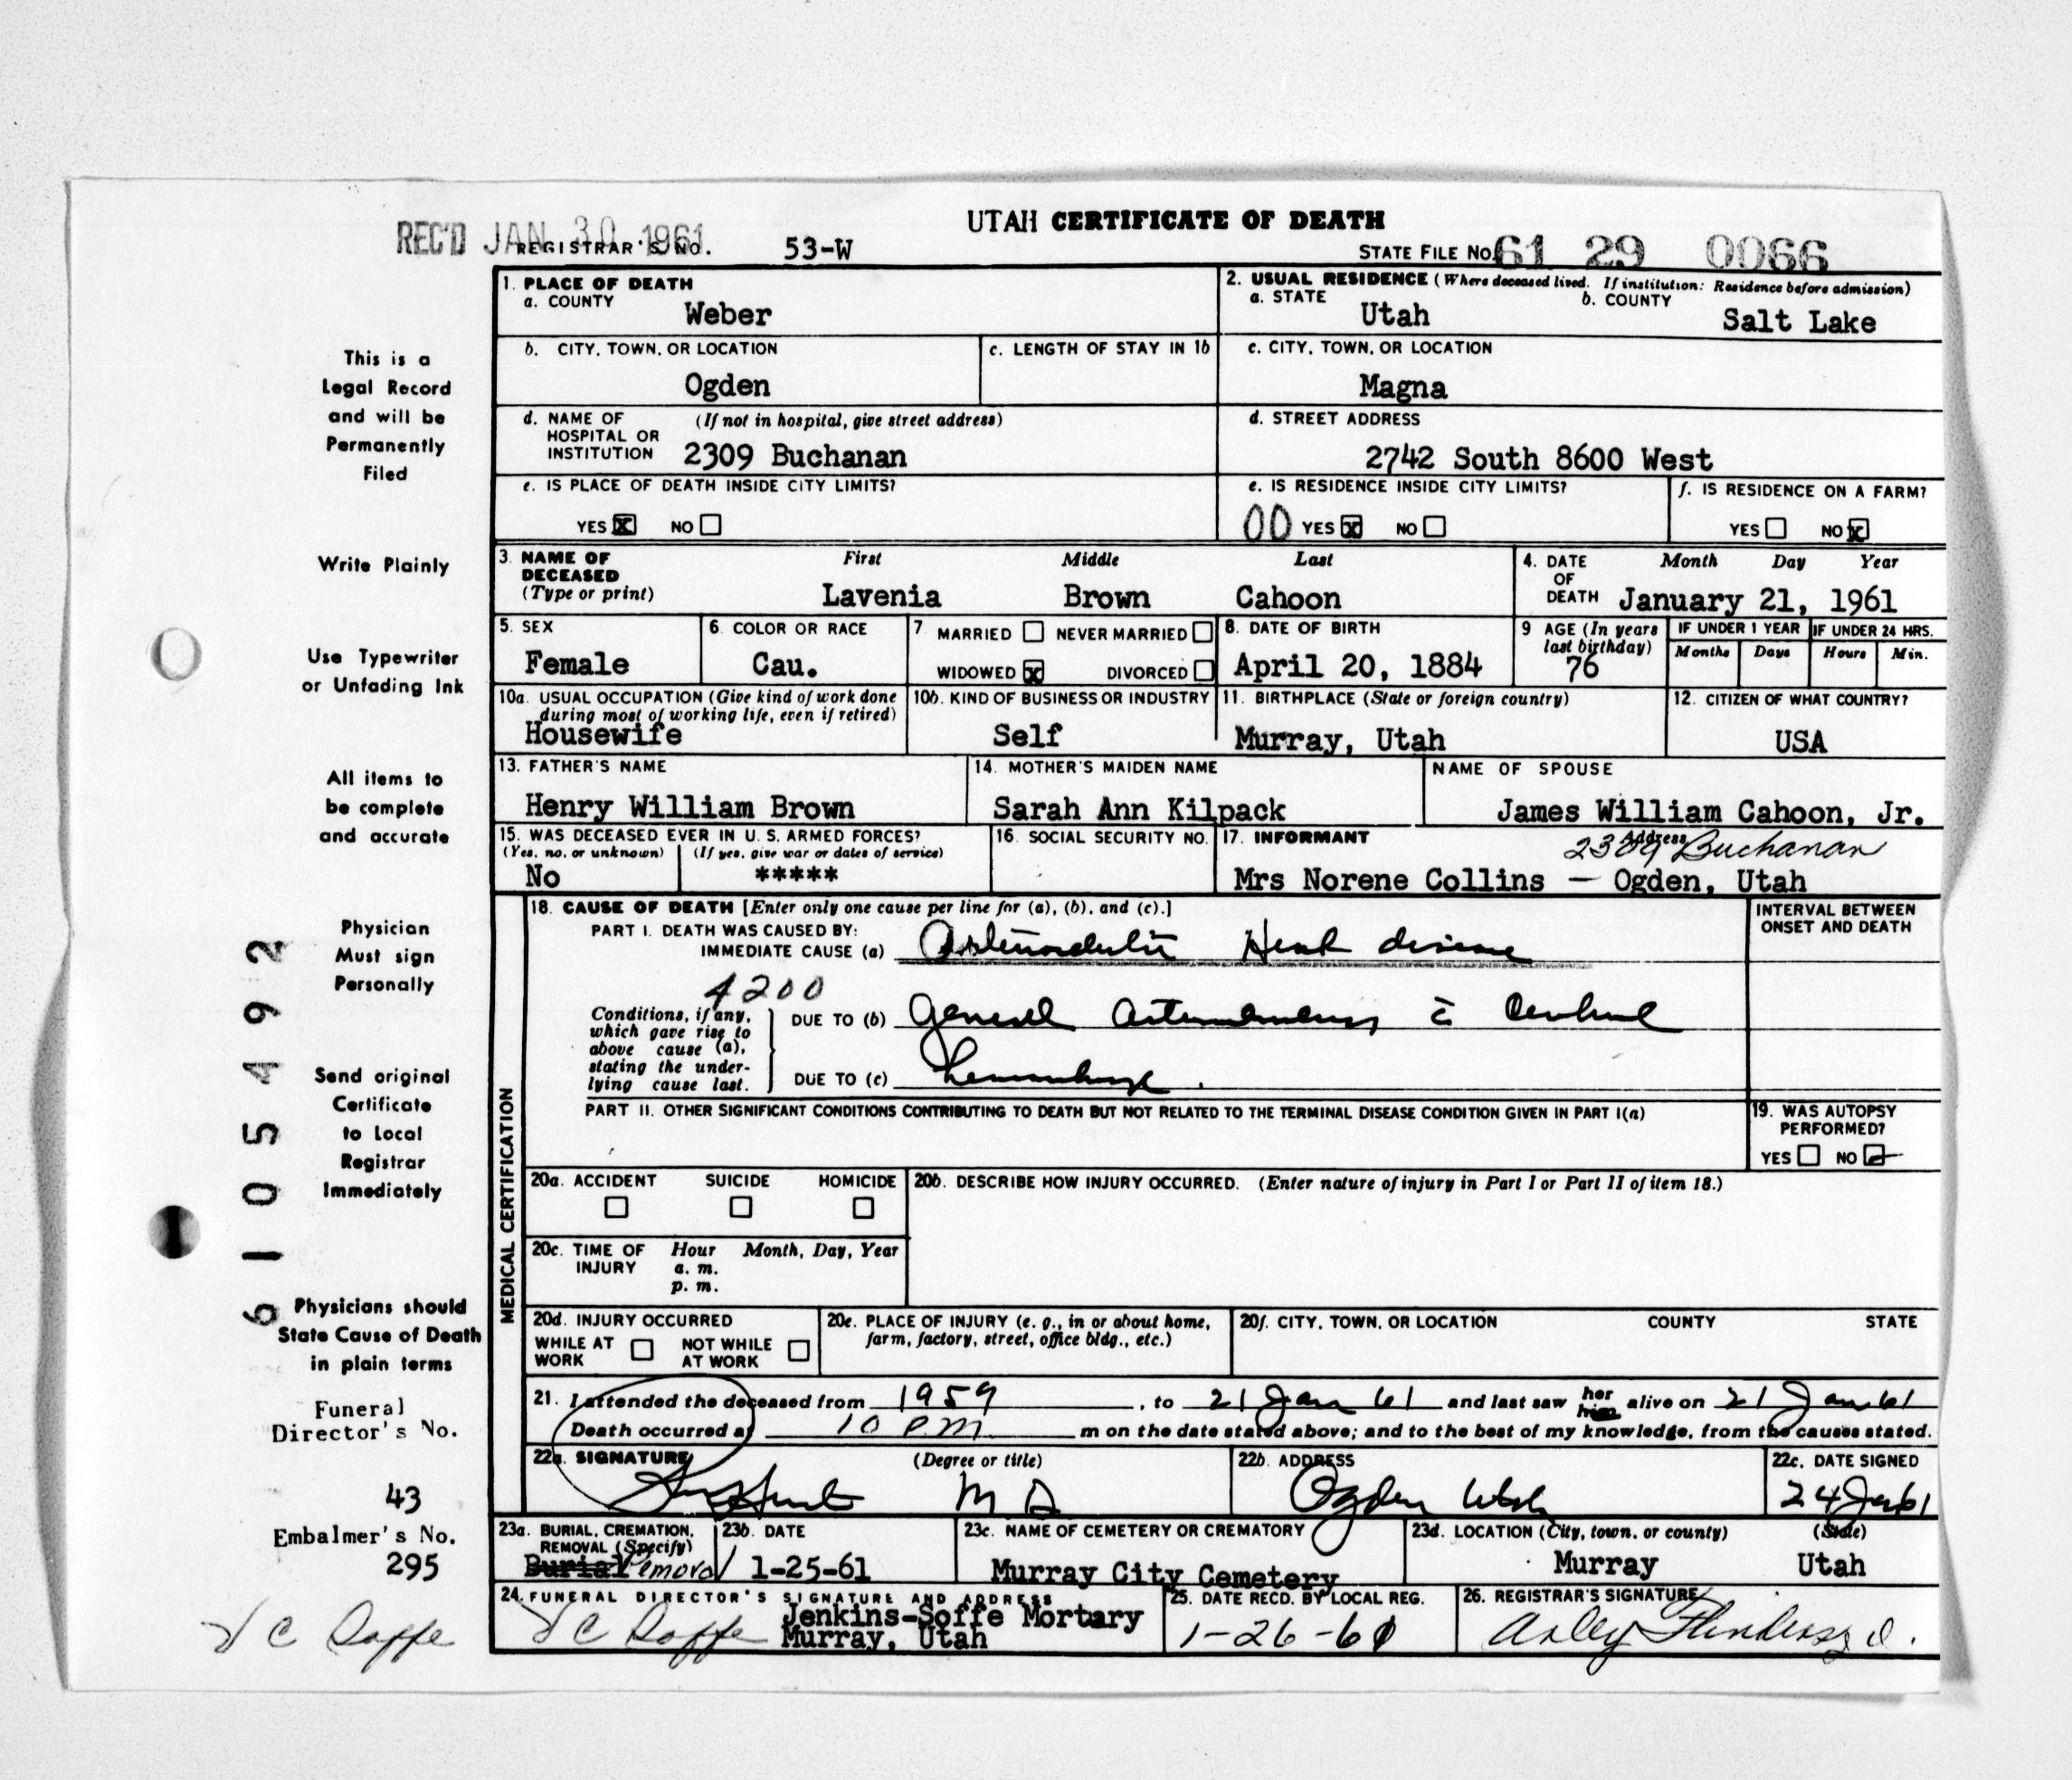 UTAH CERTIFICATE OF DEATH
REC'D JAN 30 1961
REGISTRAR'S NO. 53-W
STATE FILE NO. 61 29 0066
1. PLACE OF DEATH
a. COUNTY
Weber
2. USUAL RESIDENCE (Where deceased lived. If institution: Residence before admission)
a. STATE b. COUNTY
Utah Salt Lake
b. CITY, TOWN, OR LOCATION
Ogden
c. LENGTH OF STAY IN 1b
c. CITY, TOWN, OR LOCATION
Magna
d. NAME OF (If not in hospital, give street address)
HOSPITAL OR
INSTITUTION 2309 Buchanan
d. STREET ADDRESS
2742 South 8600 West
e. IS PLACE OF DEATH INSIDE CITY LIMITS?
YES X NO
e. IS RESIDENCE INSIDE CITY LIMITS?
00 YES X NO
f. IS RESIDENCE ON A FARM?
YES NO X
3. NAME OF DECEASED
(Type or print)
First Middle Last
Lavenia Brown Cahoon
4. DATE OF DEATH
Month Day Year
January 21, 1961
5. SEX
Female
6. COLOR OR RACE
Cau.
7 MARRIED NEVER MARRIED
WIDOWED X DIVORCED
8. DATE OF BIRTH
April 20, 1884
9 AGE (In years
last birthday)
76
IF UNDER 1 YEAR
Months Days
IF UNDER 24 HRS.
Hours Min.
10a. USUAL OCCUPATION (Give kind of work done
during most of working life, even if retired)
Housewife
10b. KIND OF BUSINESS OR INDUSTRY
Self
11. BIRTHPLACE (State or foreign country)
Murray, Utah
12. CITIZEN OF WHAT COUNTRY?
USA
13. FATHER'S NAME
Henry William Brown
14. MOTHER'S MAIDEN NAME
Sarah Ann Kilpack
NAME OF SPOUSE
James William Cahoon, Jr.
15. WAS DECEASED EVER IN U. S. ARMED FORCES?
(Yes, no, or unknown) (If yes, give war or dates of service)
No *****
16. SOCIAL SECURITY NO.
17. INFORMANT Address
2309 Buchanan
Mrs Norene Collins — Ogden, Utah
MEDICAL CERTIFICATION
18. CAUSE OF DEATH [Enter only one cause per line for (a), (b), and (c).]
INTERVAL BETWEEN
ONSET AND DEATH
PART I. DEATH WAS CAUSED BY:
IMMEDIATE CAUSE (a) Heart disease
4200
Conditions, if any,
which gave rise to
above cause (a),
stating the under-
lying cause last.
DUE TO (b) General
DUE TO (c)
PART II. OTHER SIGNIFICANT CONDITIONS CONTRIBUTING TO DEATH BUT NOT RELATED TO THE TERMINAL DISEASE CONDITION GIVEN IN PART I(a)
19. WAS AUTOPSY
PERFORMED?
YES NO
20a. ACCIDENT SUICIDE HOMICIDE
20b. DESCRIBE HOW INJURY OCCURRED. (Enter nature of injury in Part I or Part II of item 18.)
20c. TIME OF INJURY
Hour Month, Day, Year
a. m.
p. m.
20d. INJURY OCCURRED
WHILE AT WORK NOT WHILE AT WORK
20e. PLACE OF INJURY (e. g., in or about home,
farm, factory, street, office bldg., etc.)
20f. CITY, TOWN, OR LOCATION COUNTY STATE
21. I attended the deceased from 1959, to 21 Jan 61 and last saw her him alive on 21 Jan 61
Death occurred at 10 P.M. m on the date stated above; and to the best of my knowledge, from the causes stated.
22a. SIGNATURE (Degree or title)
M D
22b. ADDRESS
Ogden Utah
22c. DATE SIGNED
24 Jan 61
23a. BURIAL, CREMATION,
REMOVAL (Specify)
Burial Removal
23b. DATE
1-25-61
23c. NAME OF CEMETERY OR CREMATORY
Murray City Cemetery
23d. LOCATION (City, town, or county) (State)
Murray Utah
24. FUNERAL DIRECTOR'S SIGNATURE AND ADDRESS
Soffe
Jenkins-Soffe Mortary
Murray, Utah
25. DATE RECD. BY LOCAL REG.
1-26-61
26. REGISTRAR'S SIGNATURE
This is a
Legal Record
and will be
Permanently
Filed
Write Plainly
Use Typewriter
or Unfading Ink
All items to
be complete
and accurate
Physician
Must sign
Personally
Send original
Certificate
to Local
Registrar
Immediately
Physicians should
State Cause of Death
in plain terms
Funeral
Director's No.
43
Embalmer's No.
295
Soffe
6105492